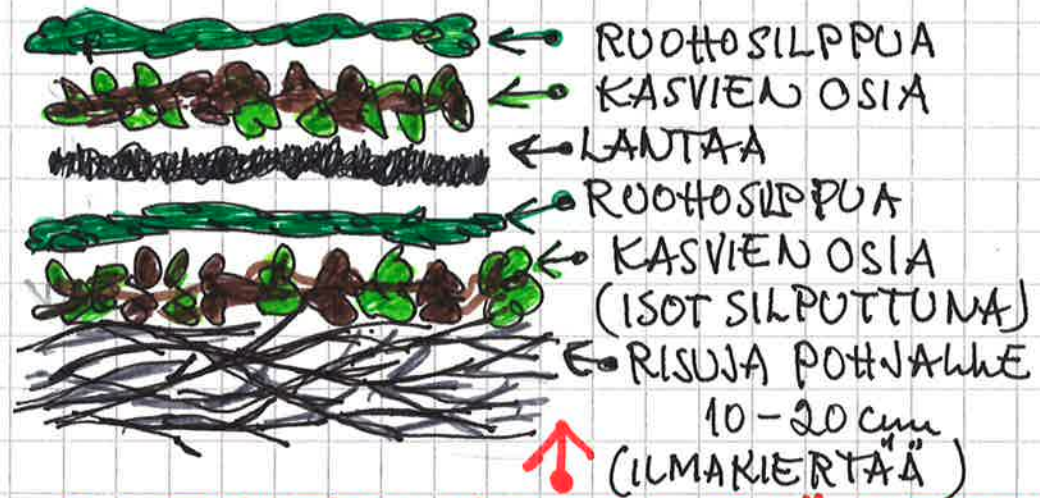 RUOHOSILPPUA
KASVIEN OSIA
LANTAA
RUOHOSILPPUA
KASVIEN OSIA
(ISOT SILPUTTUNA)
RISUJA POHJALLE
10-20 cm
(ILMAKIERTÄÄ)